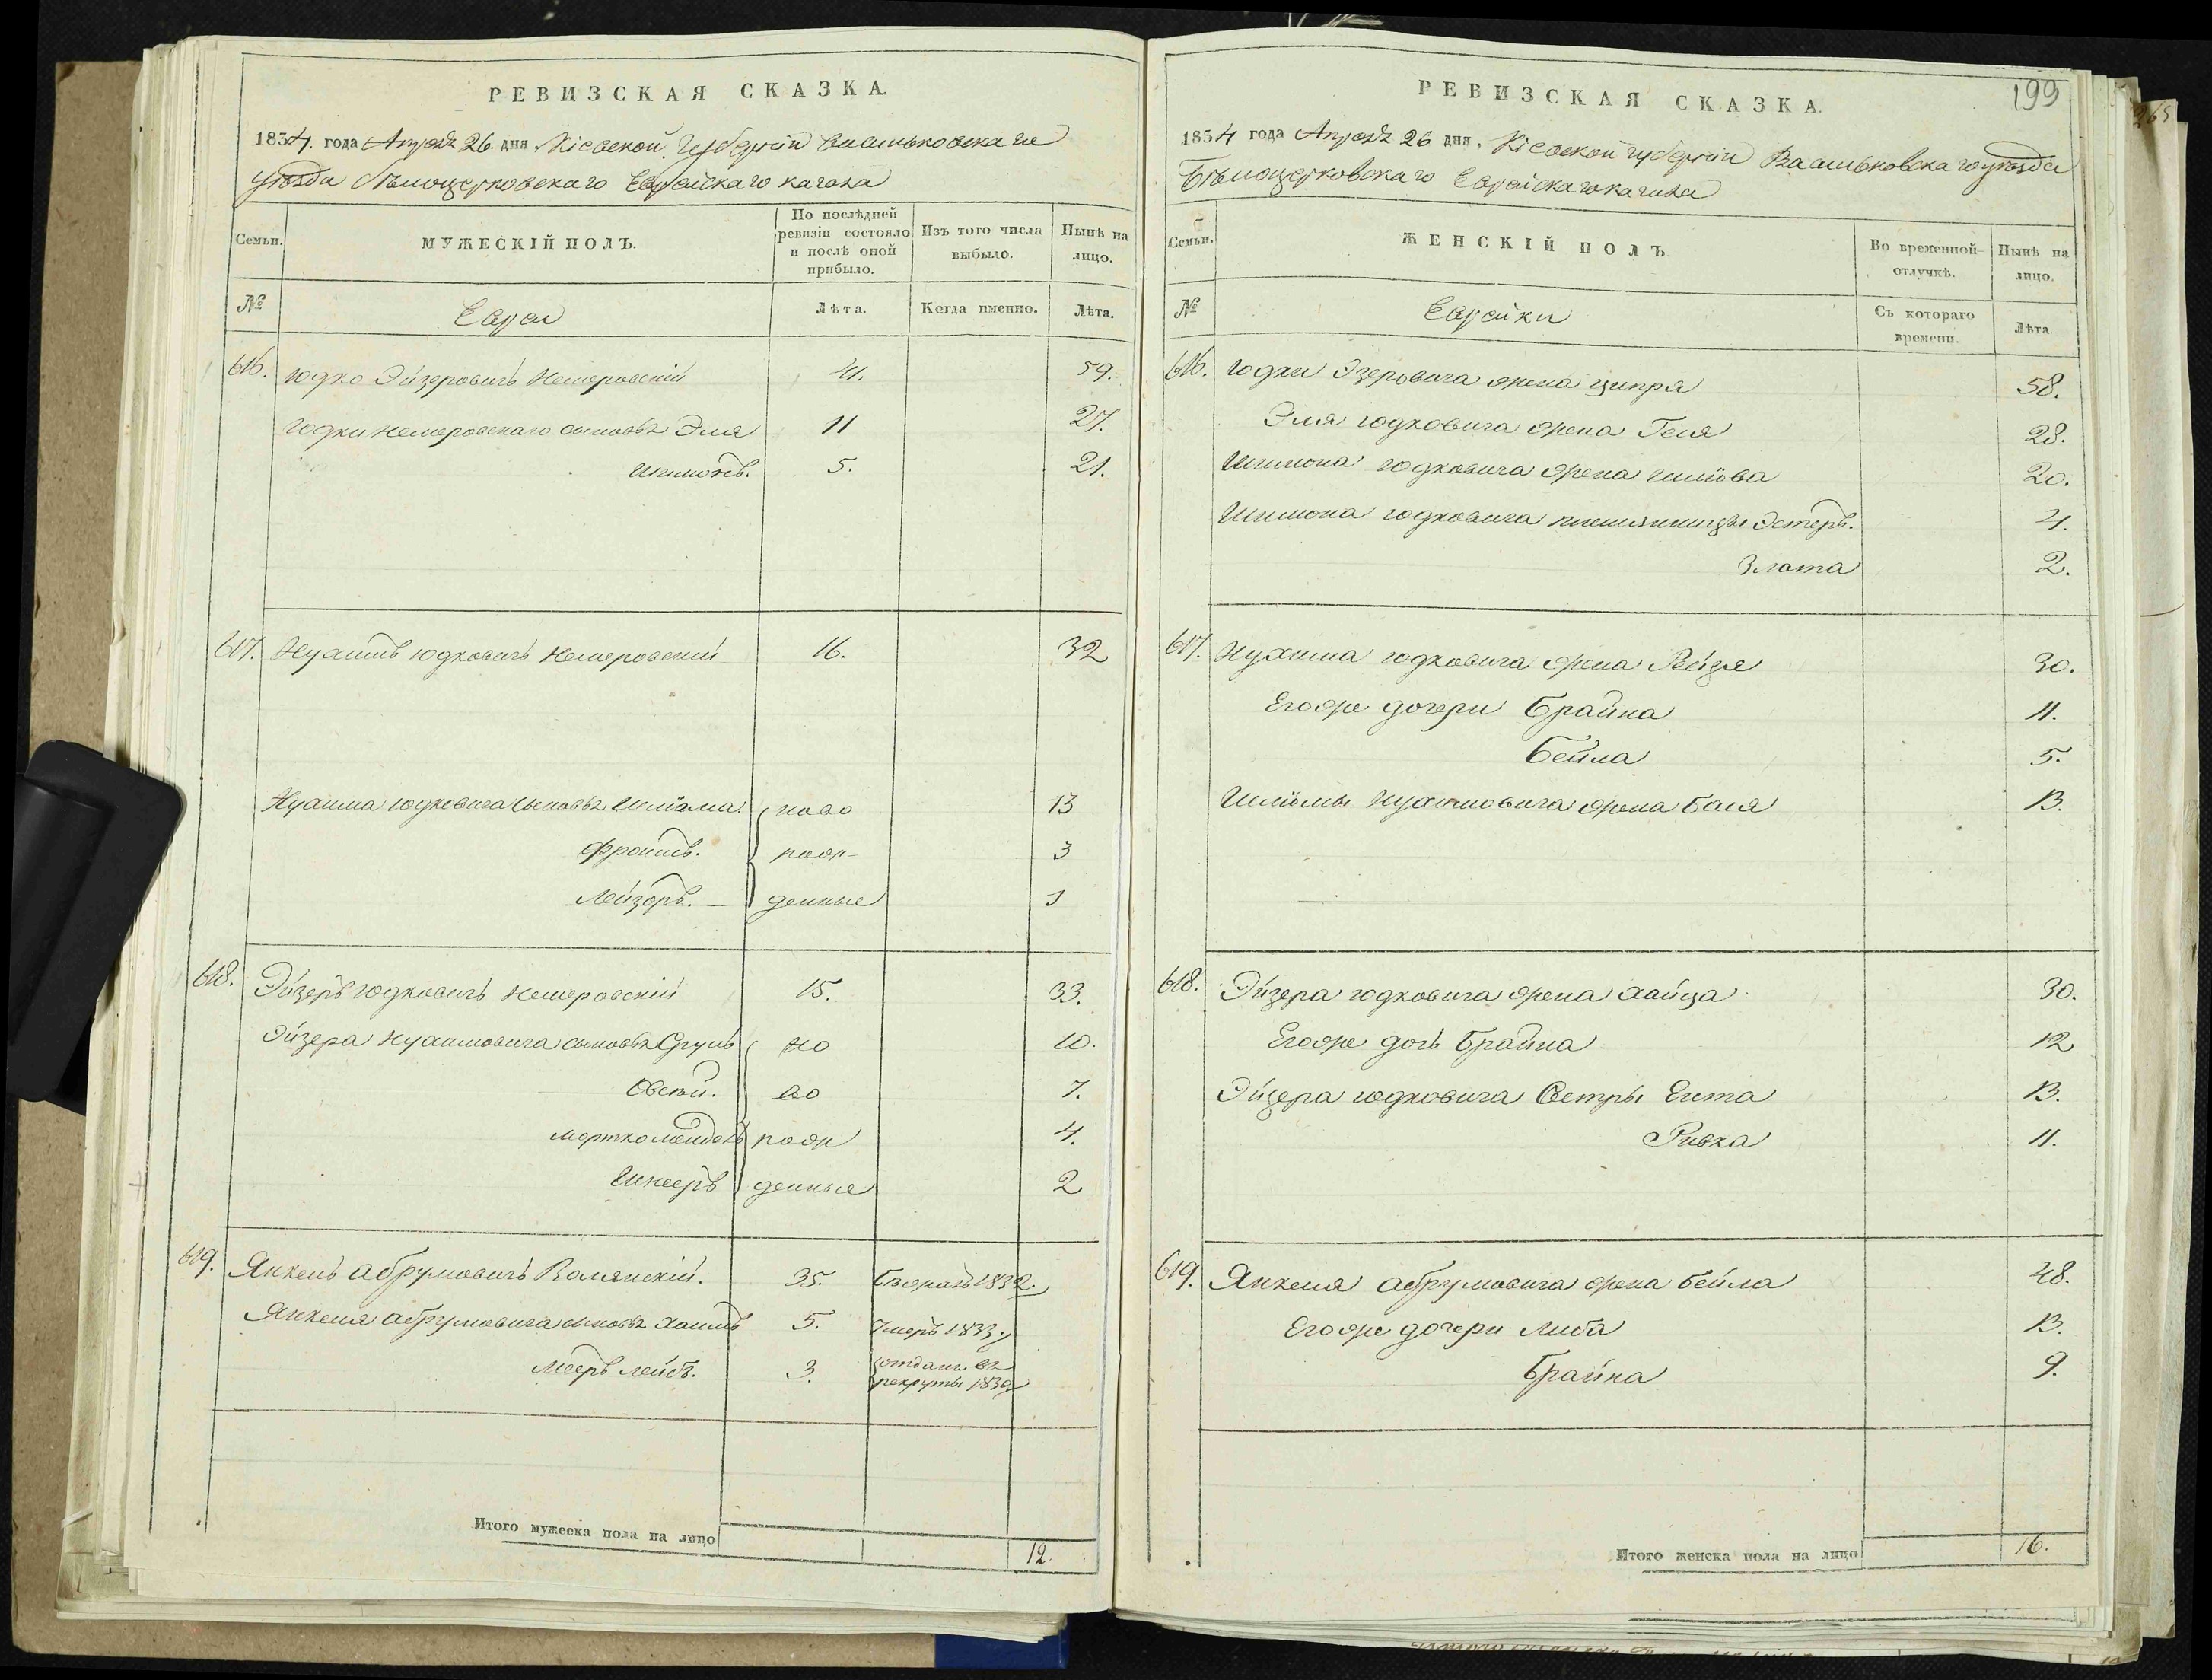 РЕВИЗСКАЯ СКАЗКА.
1834. года Апреля 26. дня. Кіевской Губерніи Васильковскаго
уѣзда бѣлоцерковскаго Еврейскаго кагала
Семьи.
МУЖЕСКІЙ ПОЛЪ.
По послѣдней ревизіи состояло и послѣ оной прибыло.
Изъ того числа выбыло.
Нынѣ на лицо.
№
Евреи
Лѣта.
Когда именно.
Лѣта.
616. Юдко Эйзеровичъ Немеровскій 41. 59.
Юдки Немеровскаго сыновья Эля 11 27.
Шимонъ. 5. 21.
617. Нухимъ Юдковичъ Немеровскій 16. 32
Нухима Юдковича сыновья Шліома ново 13
Фроимъ. рож- 3
Лейзоръ. — денные 1
618. Эйзеръ Юдковичъ Немеровскій 15. 33.
Эйзера Нухимовича сыновья Сруль но 10.
Овсѣй. во 7.
Мортко Мендель рож 4.
денные 2
619. Янкель Абрумовичъ Волянскій. 35. Бѣжалъ 1832.
Янкеля Абрумовича сыновья Хаимъ 5. Умеръ 1833.
Мееръ Лейбъ. 3. отданъ въ
рекруты 1830
Итого мужеска пола на лицо 12.
199
РЕВИЗСКАЯ СКАЗКА.
1834 года Апреля 26 дня. Кіевской губерніи Васильковскаго уѣзда
Бѣлоцерковскаго Еврейскаго кагала
Семьи.
ЖЕНСКІЙ ПОЛЪ
Во временной отлучкѣ.
Нынѣ на лицо.
№
Еврейки
Съ котораго времени.
Лѣта.
616. Юдки Эзеровича жена Ципра 58.
Эля Юдковича жена Геня 28.
Шимона Юдковича жена Шліова 20.
Шимона Юдковича племянницы Эстеръ. 4.
Злата 2.
617. Нухима Юдковича жена Рейзя 30.
Егоже дочери Брайна 11.
Бейла 5.
Шліомы Нухимовича жена Бася 13.
618. Эйзера Юдковича жена Хайца 30.
Егоже дочь Брайна 12
Эйзера Юдковича Сестры Ента 13.
Ривка 11.
619. Янкеля Абрумовича жена Бейла 48.
Егоже дочери Либа 13.
Брайна 9.
Итого женска пола на лицо 16.
265